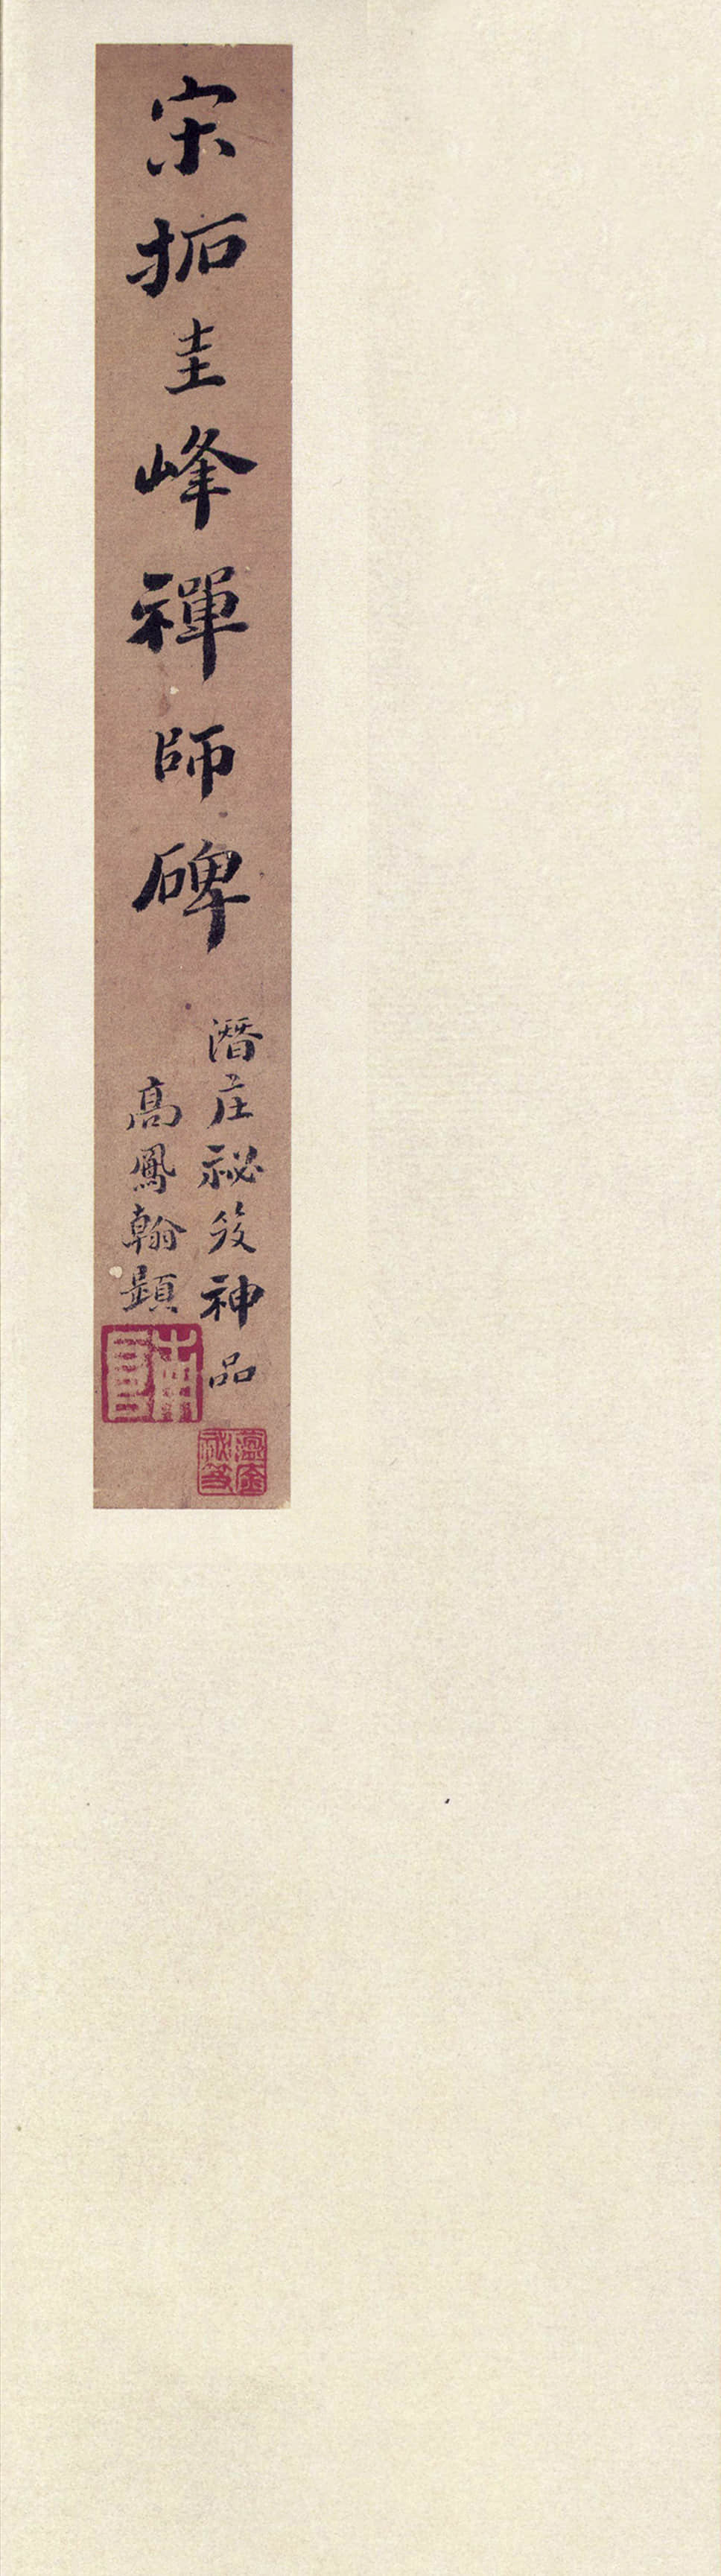 宋拓圭峰禪師碑
潛庄祕笈神品
高鳳翰題